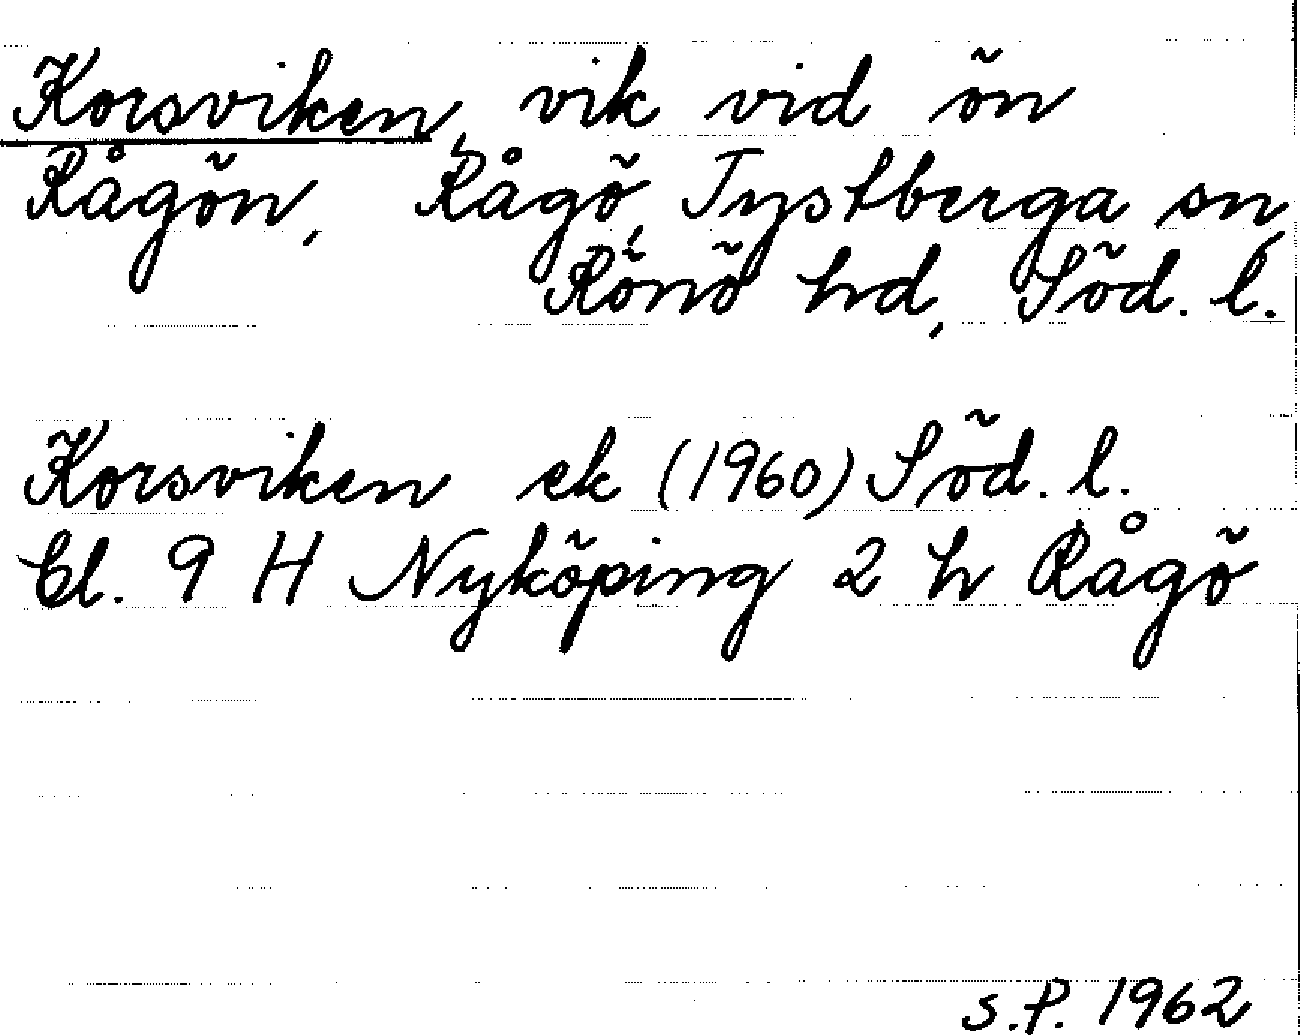 Korsviken, vik vid ön
Rågön, Rågö, Tystberga sn,
Rönö hd, Söd. l.
Korsviken ek (1960) Söd. l.
Bl. 9 H Nyköping 2 h Rågö
S.P. 1962